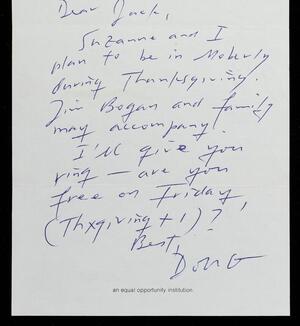 Dear Jack,
Suzanne and I
plan to be in Moberly
during Thanksgiving.
Jim Bogan and family
may accompany.
I'll give you
ring — are you
free on Friday
(Thxgiving + 1)?
Best,
Doug
an equal opportunity institution